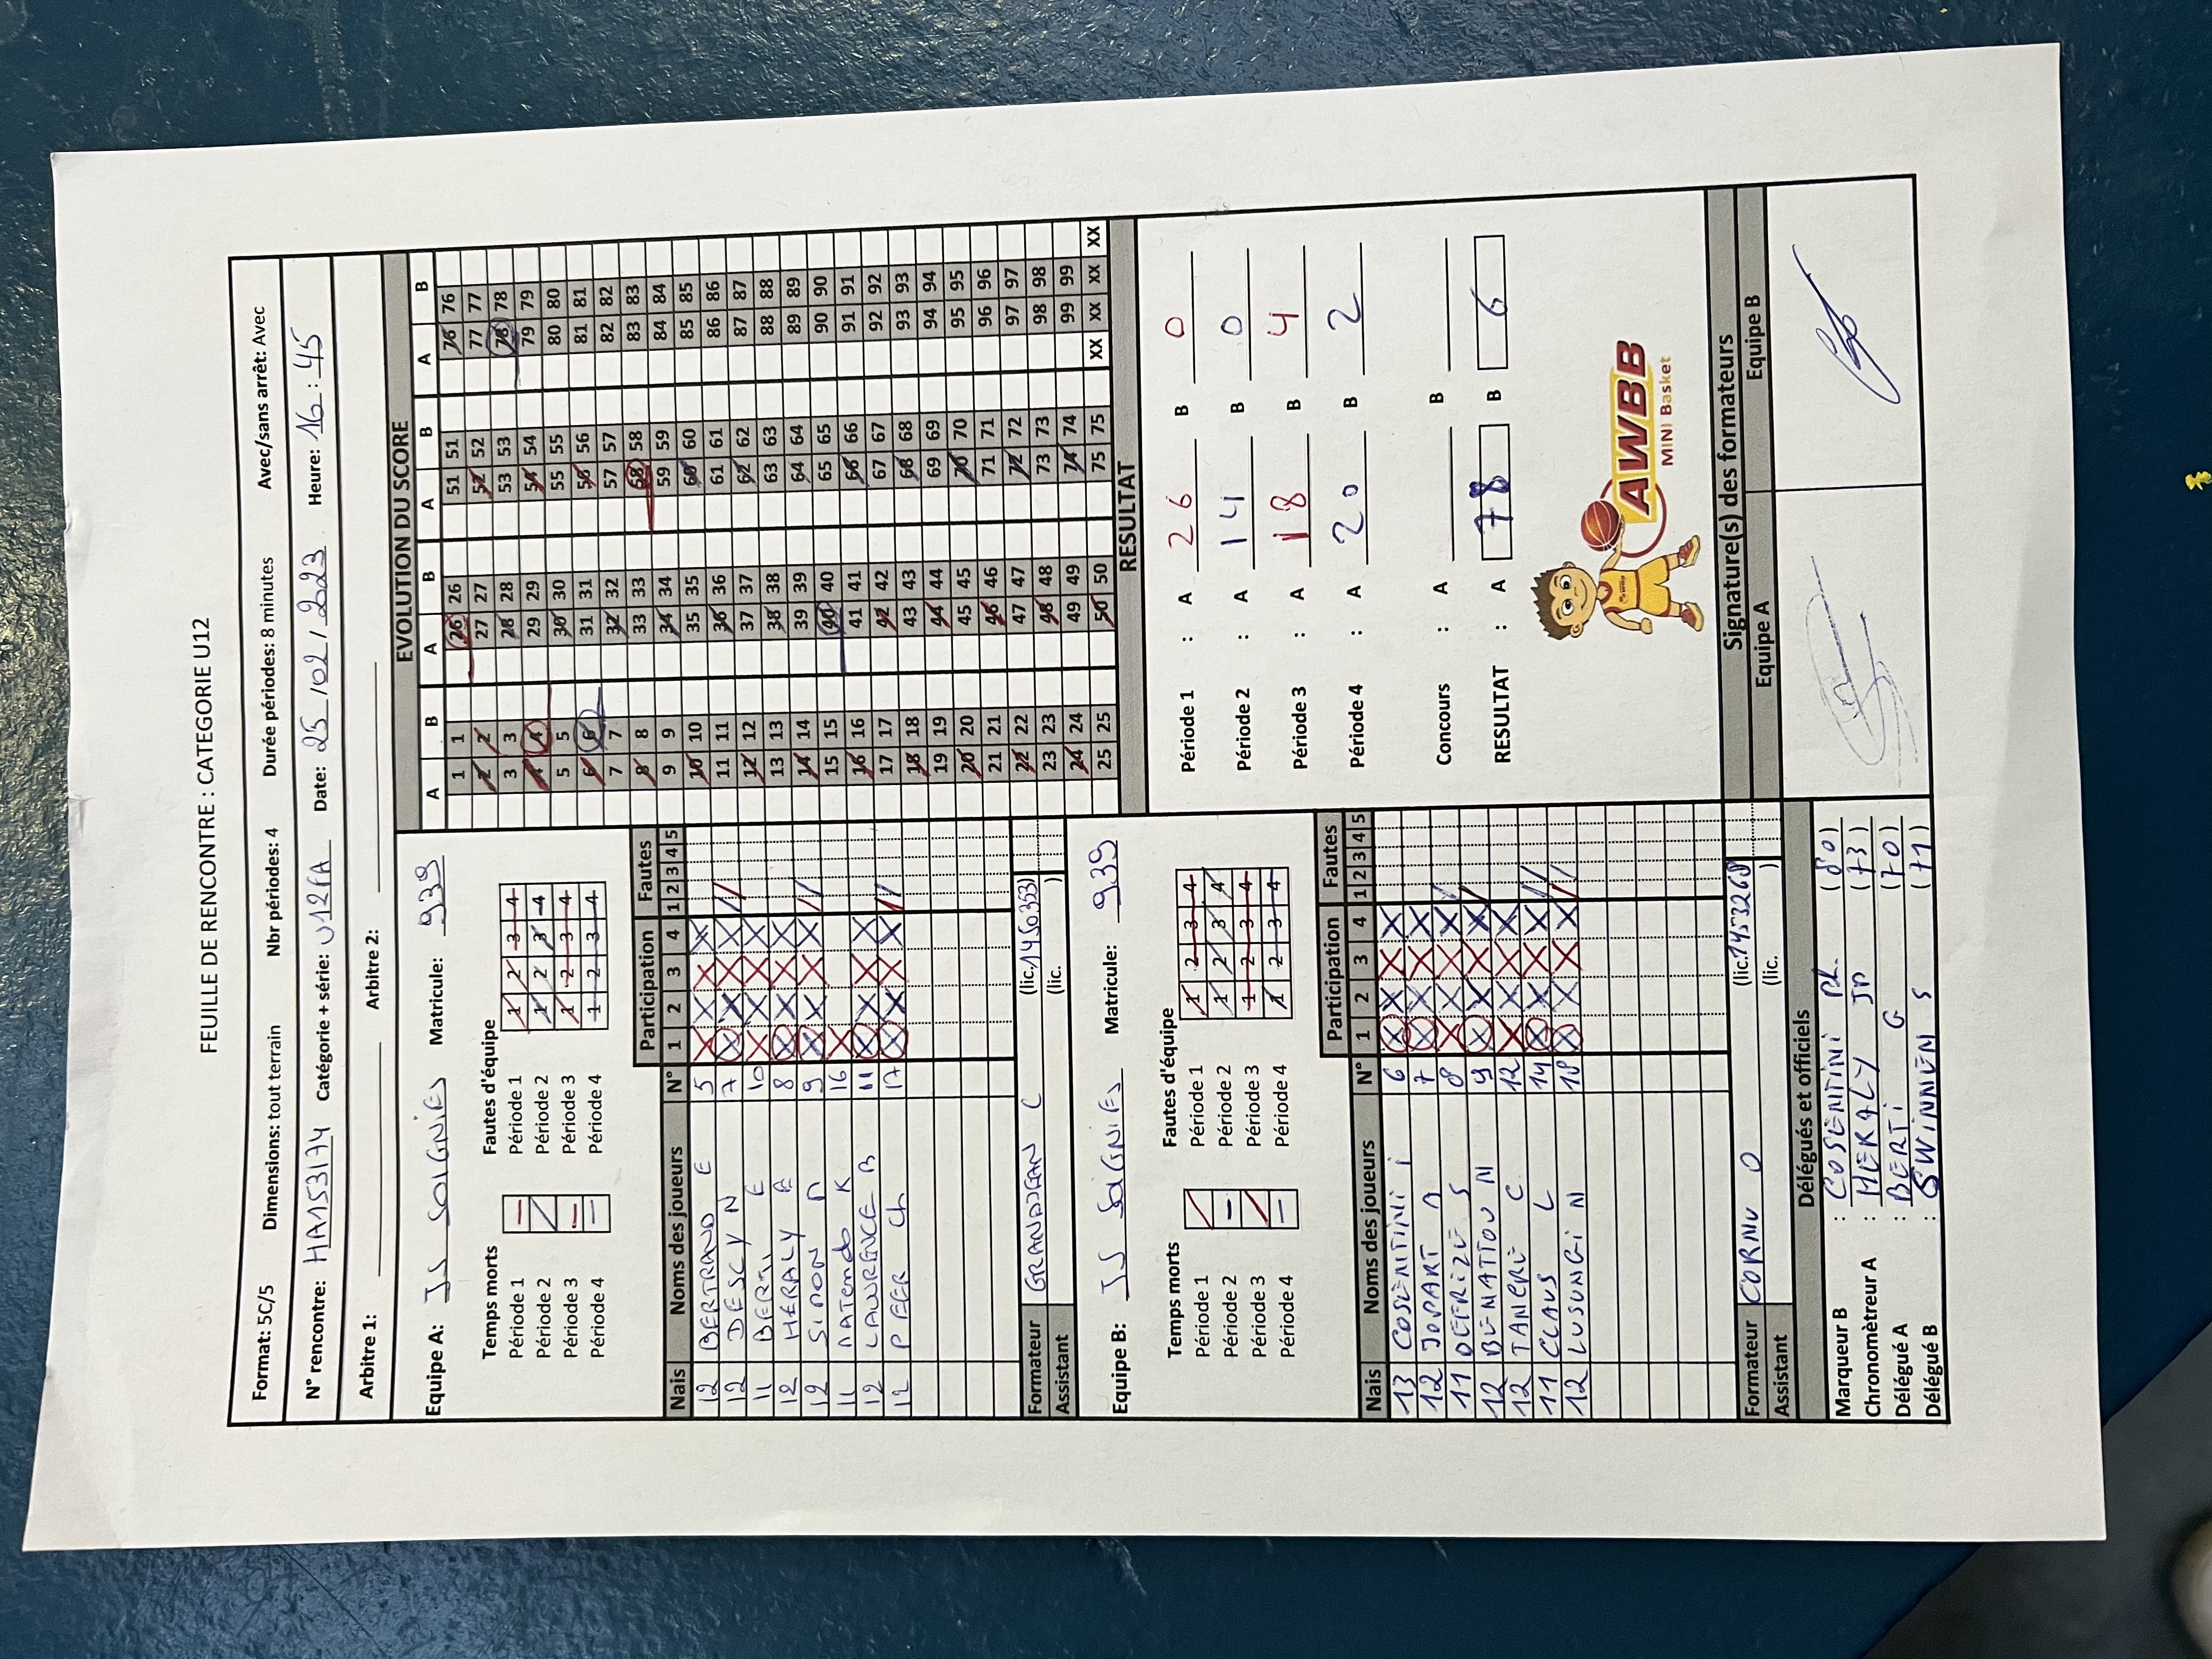 FEUILLE DE RENCONTRE : CATEGORIE U12
Format: 5C/5 Dimensions: tout terrain Nbr périodes: 4 Durée périodes: 8 minutes Avec/sans arrêt: Avec
N° rencontre: HA153174 Catégorie + série: U12FA Date: 25/02/2023 Heure: 16:45
Arbitre 1: Arbitre 2:
Equipe A: JS SOIGNIES Matricule: 939
Temps morts Fautes d'équipe
Période 1 Période 1 1 2 3 4
Période 2 Période 2 1 2 3 4
Période 3 Période 3 1 2 3 4
Période 4 Période 4 1 2 3 4
Nais Noms des joueurs N° Participation Fautes
1 2 3 4 1 2 3 4 5
12 BERTRAND E 5 X X X X
12 DESCY N 7 X X X X
11 BERTI E 10 X X X X
12 HERALY 8 X X X X
12 SIMON 9 X X X X
11 MATONDO K 16 X
12 LAURENCE B 11 X X X X
12 PEER Ch 17 X X X X
Formateur GRANDJEAN C (lic.1450353)
Assistant (lic. )
Equipe B: JS SOIGNIES Matricule: 939
Temps morts Fautes d'équipe
Période 1 Période 1 1 2 3 4
Période 2 Période 2 1 2 3 4
Période 3 Période 3 1 2 3 4
Période 4 Période 4 1 2 3 4
Nais Noms des joueurs N° Participation Fautes
1 2 3 4 1 2 3 4 5
13 COSENTINI i 6 X X X X
12 JOPART 7 X X X X
11 DEFRIZE S 8 X X X X
12 BENATTOU N 9 X X X X
12 TANERE C 12 X X X X
11 CLAUS L 14 X X X X
12 LUSUNGI N 18 X X X X
Formateur CORNU O (lic.1453268)
Assistant (lic. )
Délégués et officiels
Marqueur B : COSENTINI Ph. (80)
Chronomètreur A : HERALY JP (73)
Délégué A : BERTI G (70)
Délégué B : SWINNEN S (71)
EVOLUTION DU SCORE
A B A B A B A B
1 1 26 26 51 51 76 76
2 2 27 27 52 52 77 77
3 3 28 28 53 53 78 78
4 4 29 29 54 54 79 79
5 5 30 30 55 55 80 80
6 6 31 31 56 56 81 81
7 7 32 32 57 57 82 82
8 8 33 33 58 58 83 83
9 9 34 34 59 59 84 84
10 10 35 35 60 60 85 85
11 11 36 36 61 61 86 86
12 12 37 37 62 62 87 87
13 13 38 38 63 63 88 88
14 14 39 39 64 64 89 89
15 15 40 40 65 65 90 90
16 16 41 41 66 66 91 91
17 17 42 42 67 67 92 92
18 18 43 43 68 68 93 93
19 19 44 44 69 69 94 94
20 20 45 45 70 70 95 95
21 21 46 46 71 71 96 96
22 22 47 47 72 72 97 97
23 23 48 48 73 73 98 98
24 24 49 49 74 74 99 99
25 25 50 50 75 75 XX XX XX XX
RESULTAT
Période 1 : A 26 B 0
Période 2 : A 14 B 0
Période 3 : A 18 B 4
Période 4 : A 20 B 2
Concours : A B
RESULTAT : A 78 B 6
AWBB
MINI Basket
Signature(s) des formateurs
Equipe A Equipe B